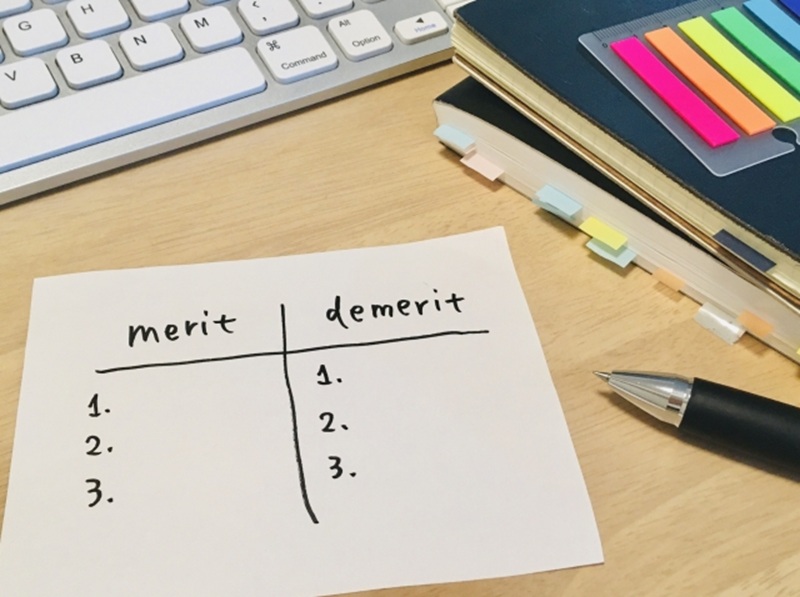 G H
V B N M < , ⌘ Command Alt Option ◀ Home
merit demerit
1. 1.
2. 2.
3. 3.